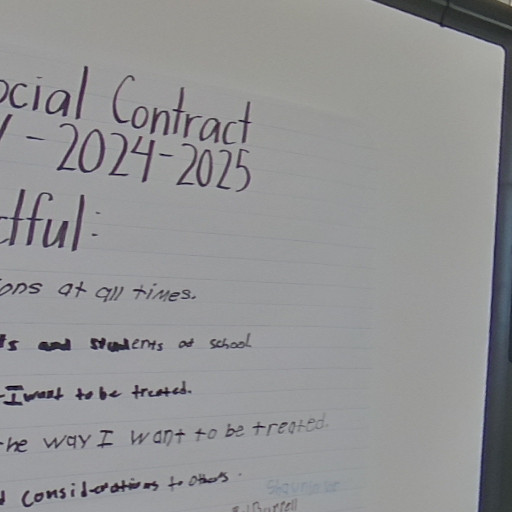 ocial Contract
- 2024-2025
ctful:
ons at all times.
ts and students at school
I want to be treated.
the way I want to be treated.
considerations to others.